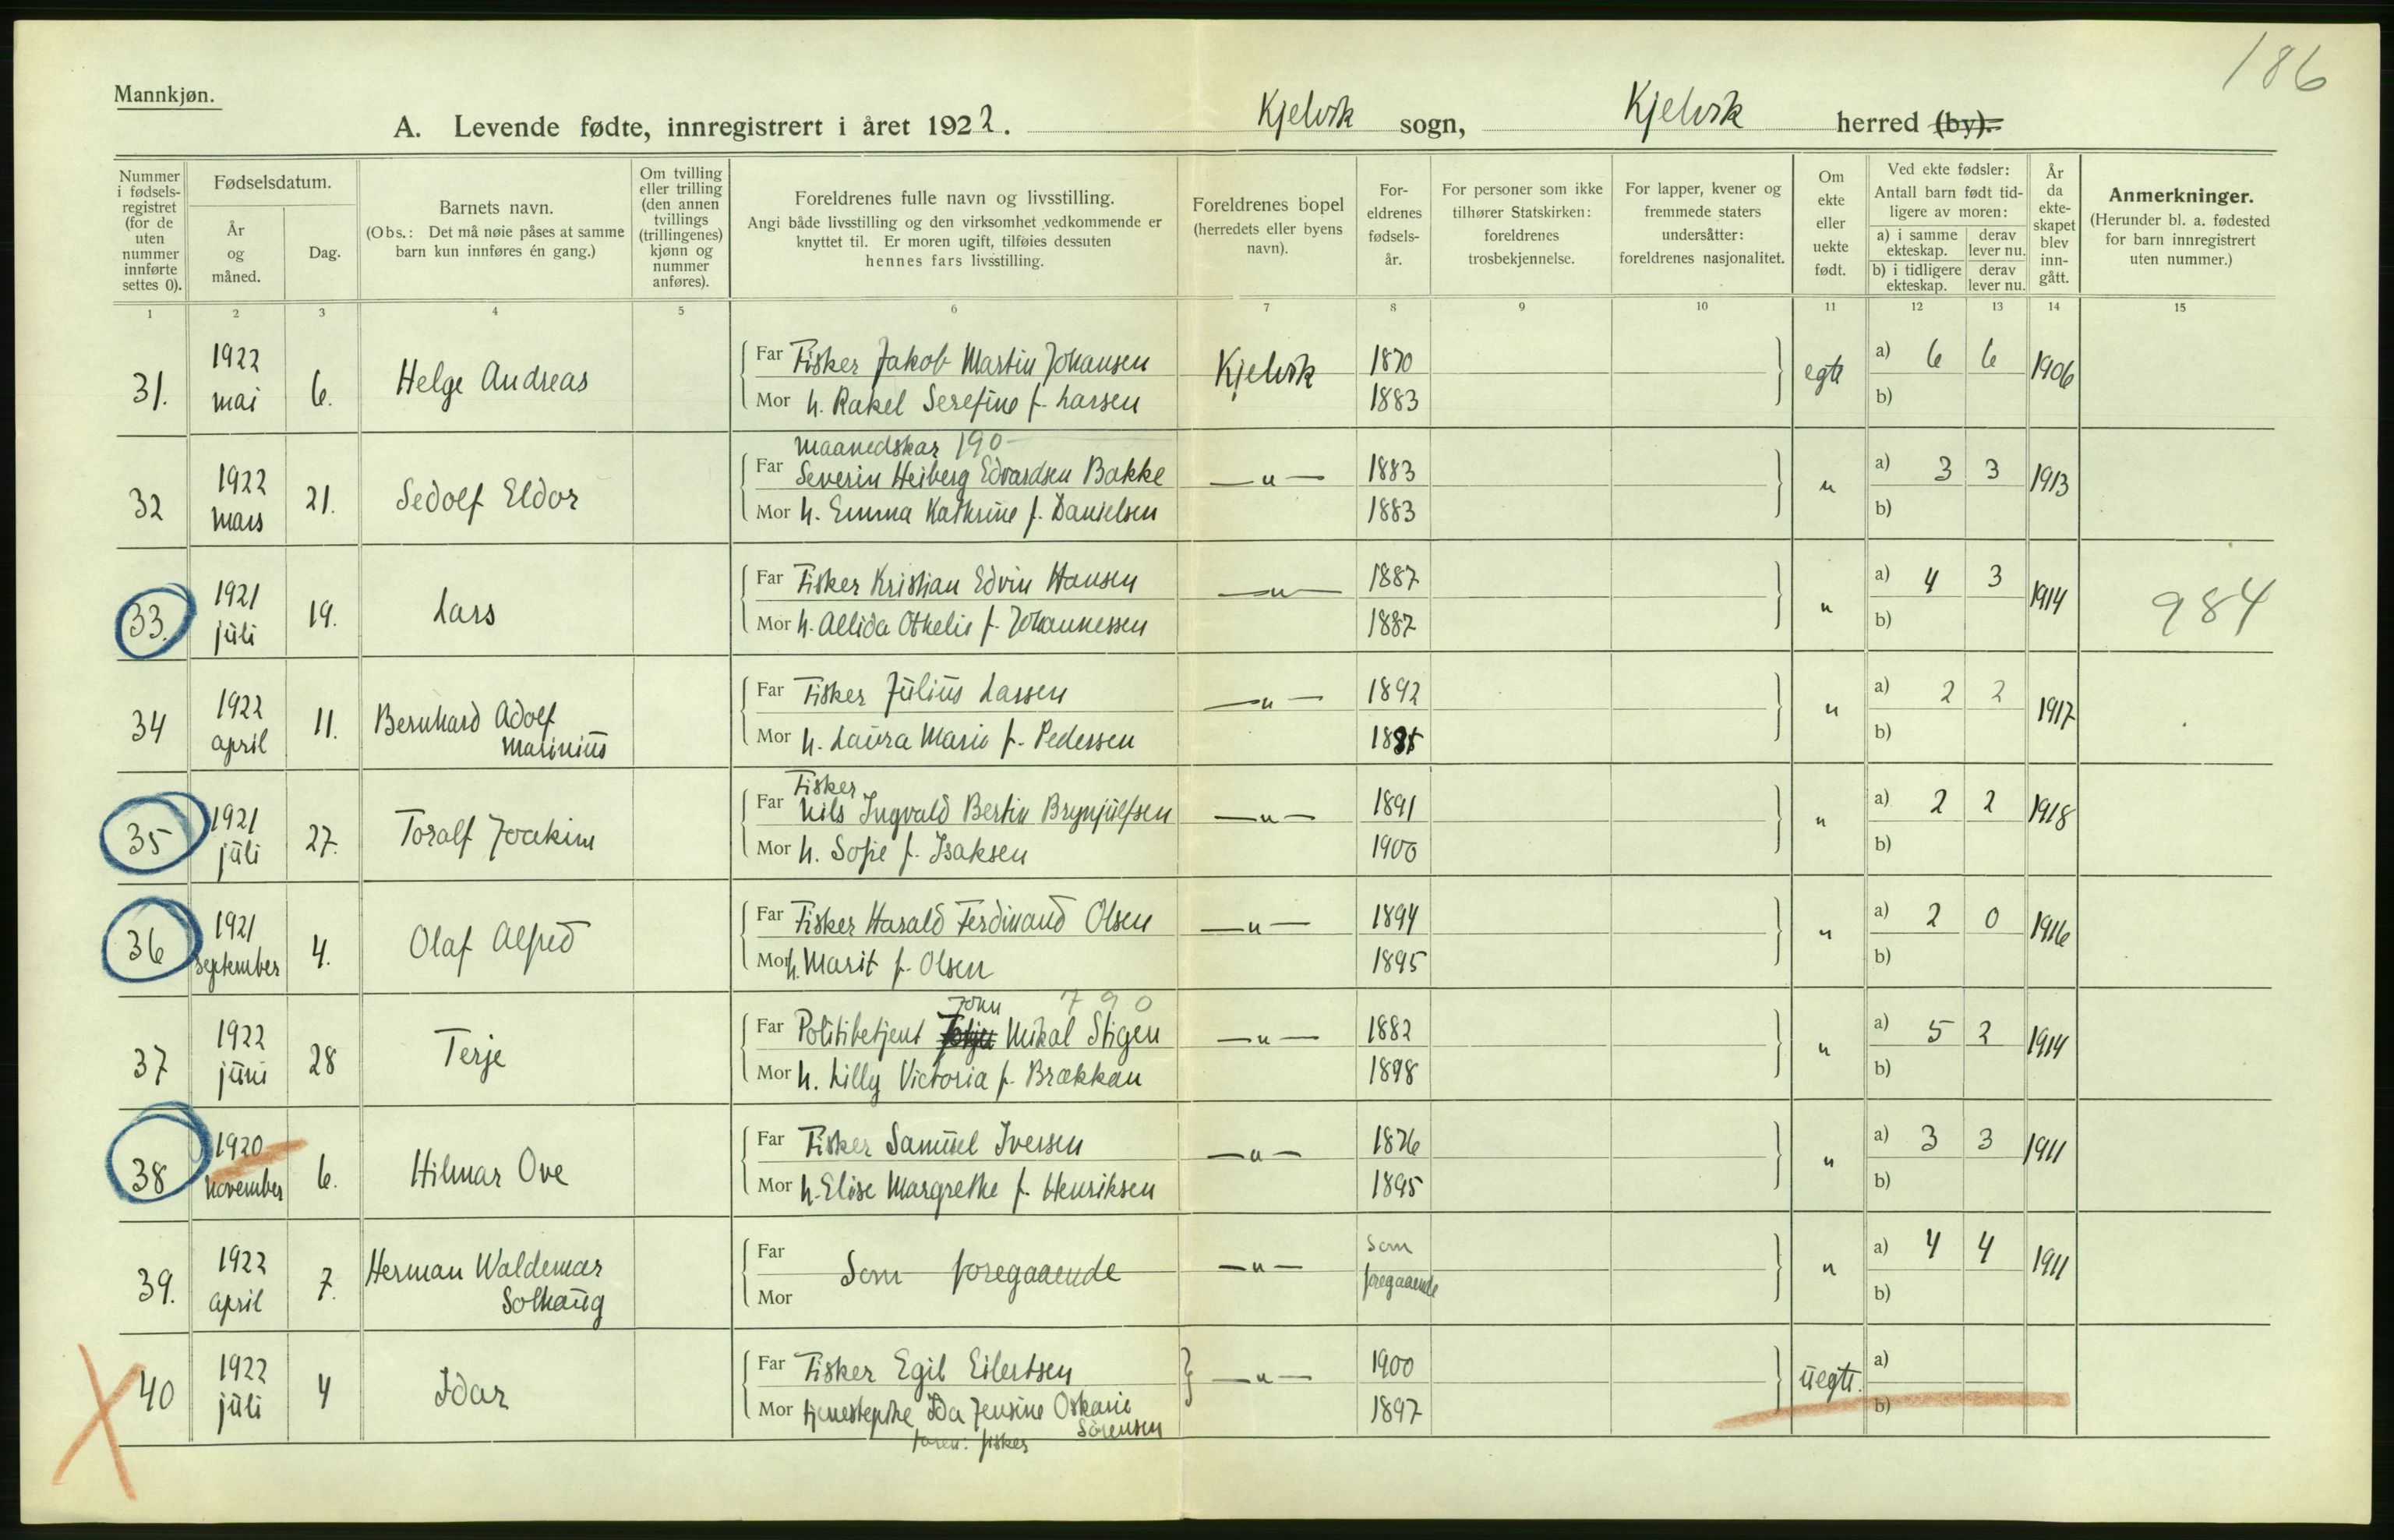 186
Mannkjøn.
A. Levende fødte, innregistrert i året 1922. Kjelvik sogn, Kjelvik herred (by).
Nummer i fødsels-registret (for de uten nummer innførte settes 0).
Fødselsdatum.
År og måned.
Dag.
Barnets navn.
(Obs.: Det må nøie påses at samme barn kun innføres én gang.)
Om tvilling eller trilling (den annen tvillings (trillingenes) kjønn og nummer anføres).
Foreldrenes fulle navn og livsstilling.
Angi både livsstilling og den virksomhet vedkommende er knyttet til. Er moren ugift, tilføies dessuten hennes fars livsstilling.
Foreldrenes bopel (herredets eller byens navn).
For-eldrenes fødsels-år.
For personer som ikke tilhører Statskirken: foreldrenes trosbekjennelse.
For lapper, kvener og fremmede staters undersåtter: foreldrenes nasjonalitet.
Om ekte eller uekte født.
Ved ekte fødsler:
Antall barn født tid-ligere av moren:
a) i samme ekteskap. derav lever nu.
b) i tidligere ekteskap. derav lever nu.
År da ekte-skapet blev inn-gått.
Anmerkninger.
(Herunder bl. a. fødested for barn innregistrert uten nummer.)
1 2 3 4 5 6 7 8 9 10 11 12 13 14 15
31. 1922 mai 6. Helge Andreas
Far Fisker Jakob Martin Johansen Kjelvik 1870 egte a) 6 6 1906
Mor h. Rakel Serefine f. Larsen 1883 b)
32 1922 mars 21. Sedolf Eldor
maanedskar 190
Far Severin Heiberg Edvardsen Bakke —„— 1883 „ a) 3 3 1913
Mor h. Emma Kathrine f. Danielsen 1883 b)
33. 1921 juli 19. Lars
Far Fisker Kristian Edvin Hansen —„— 1887 „ a) 4 3 1914 984
Mor h. Allida Othelie f. Johannessen 1887 b)
34 1922 april 11. Bernhard Adolf Marinius
Far Fisker Julius Larsen —„— 1892 „ a) 2 2 1917
Mor h. Laura Marie f. Pedersen b)
35 1921 juli 27. Toralf Joakim
Fisker
Far Nils Ingvald Bertin Brynjulfsen —„— 1891 „ a) 2 2 1918
Mor h. Sofie f. Isaksen 1900 b)
36 1921 september 4. Olaf Alfred
Far Fisker Harald Ferdinand Olsen —„— 1894 „ a) 2 0 1916
Mor h. Marit f. Olsen 1895 b)
37 1922 juni 28 Terje
John 790
Far Politibetjent Mikal Stigen —„— 1882 „ a) 5 2 1914
Mor h. Lilly Victoria f. Brækkan 1898 b)
38 1920 november 6. Hilmar Ove
Far Fisker Samuel Iversen —„— 1876 „ a) 3 3 1911
Mor h. Elise Margrethe f. Henriksen 1895 b)
39. 1922 april 7. Herman Waldemar Solhaug
Far Som foregaaende —„— Som foregaaende „ a) 4 4 1911
Mor b)
40 1922 juli 4 Idar
Far Fisker Egil Eilertsen —„— 1900 uegte. a)
Mor tjenestepike Ida Jensine Oskarie Sörensen 1897 b)
faren: fisker